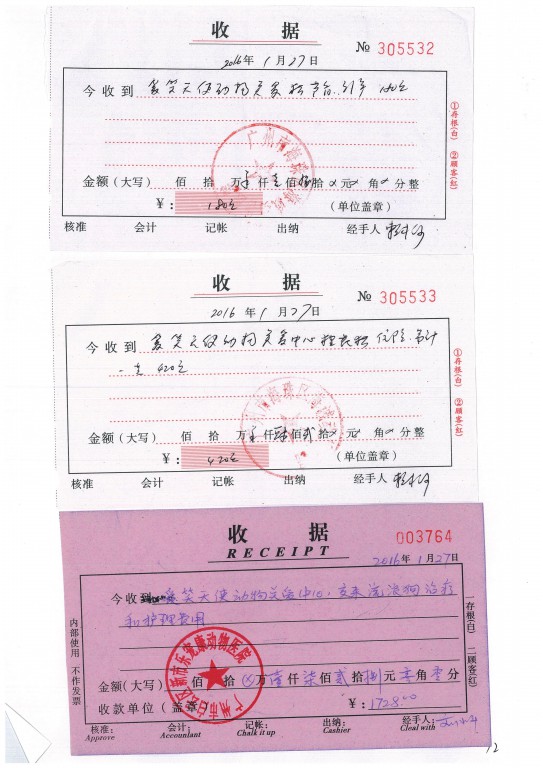 收 据
№ 305532
2016年 1月27日
今收到 爱笑天使动物关爱 180元
金额(大写) 佰 拾 万 仟壹佰捌拾 元 角 分整
¥: 180元 (单位盖章)
核准 会计 记帐 出纳 经手人
①存根(白) ②顾客(红)
收 据
№ 305533
2016年 1月27日
今收到 爱笑天使动物关爱中心 住院
420元
金额(大写) 佰 拾 万 仟肆佰贰拾 元 角 分整
¥: 420元 (单位盖章)
核准 会计 记帐 出纳 经手人
①存根(白) ②顾客(红)
收 据
RECEIPT
003764
2016年 1月27日
今收到 爱笑天使动物关爱中心,交来流浪狗治疗
和护理费用
广州市白云区新市乐宠康动物医院
金额(大写) 佰 拾 万壹仟柒佰贰拾捌元零角零分
收款单位(盖章) ¥: 1728.00
核准: 会计: 记帐: 出纳: 经手人:
Approve Accountant Chalk it up Cashier Cleal with
内部使用 不作发票
一存根(白) 二顾客(红)
12